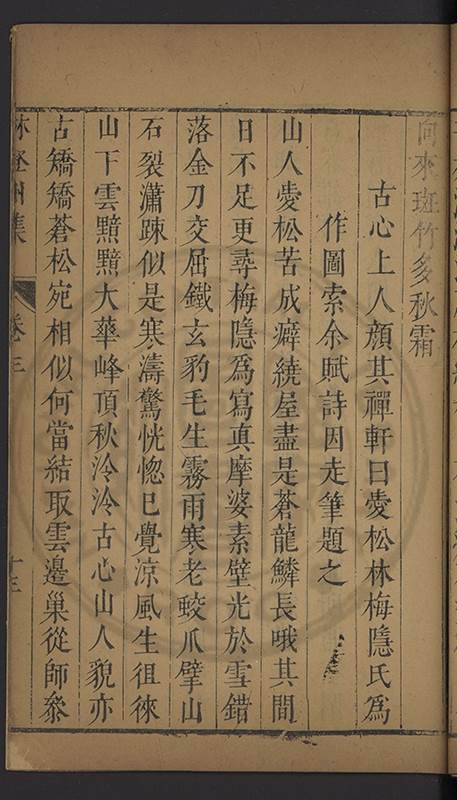 向來斑竹多秋霜
古心上人顏其禪軒曰愛松林梅隱氏為
作圖索余賦詩因走筆題之
山人愛松苦成癖繞屋盡是蒼龍鱗長哦其間
日不足更尋梅隱為寫真摩婆素壁光於雪錯
落金刀交屈鐵玄豹毛生霧雨寒老蛟爪擘山
石裂瀟踈似是寒濤驚恍惚已覺涼風生徂徠
山下雲黯黯大華峰頂秋泠泠古心山人貌亦
古矯矯蒼松宛相似何當結取雲邊巢從師叅
林登州集
卷三
十三